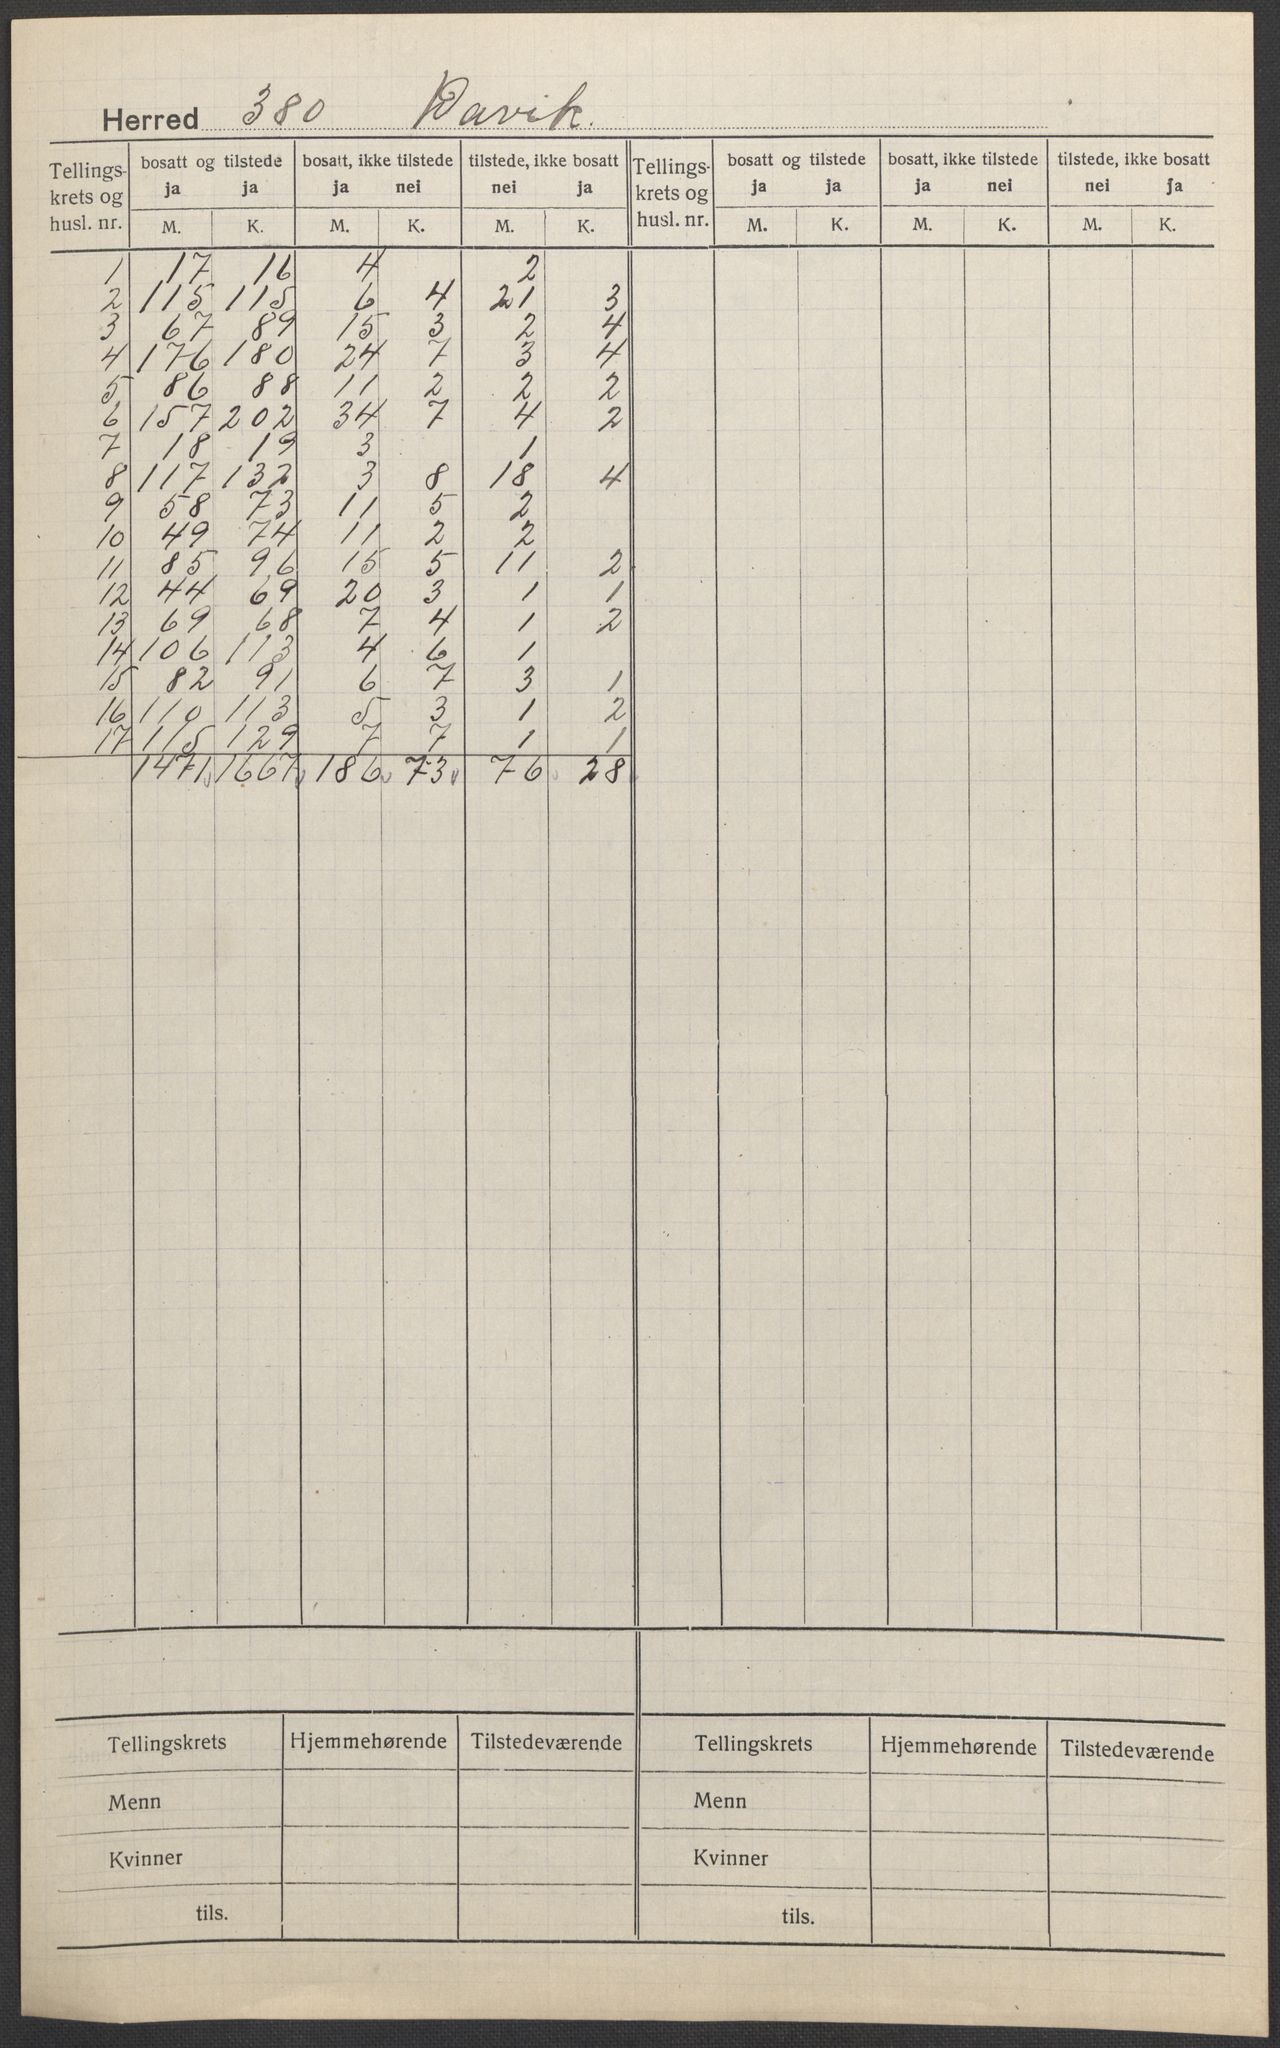 Herred 380 Davik.
Tellings- krets og husl. nr. | bosatt og tilstede ja ja | bosatt, ikke tilstede ja nei | tilstede, ikke bosatt nei ja | Tellings- krets og husl. nr. | bosatt og tilstede ja ja | bosatt, ikke tilstede ja nei | tilstede, ikke bosatt nei ja
M. K. M. K. M. K. M. K. M. K. M. K.
1 17 16 4 2
2 115 115 6 4 21 3
3 67 89 15 3 2 4
4 176 180 24 7 3 4
5 86 88 11 2 2 2
6 157 202 34 7 4 2
7 18 19 3 1
8 117 132 3 8 18 4
9 58 73 11 5 2
10 49 74 11 2 2
11 85 96 15 5 11 2
12 44 69 20 3 1 1
13 69 68 7 4 1 2
14 106 113 4 6 1
15 82 91 6 7 3 1
16 110 113 5 3 1 2
17 115 129 7 7 1 1
1471 1667 186 73 76 28
Tellingskrets Hjemmehørende Tilstedeværende Tellingskrets Hjemmehørende Tilstedeværende
Menn Menn
Kvinner Kvinner
tils. tils.